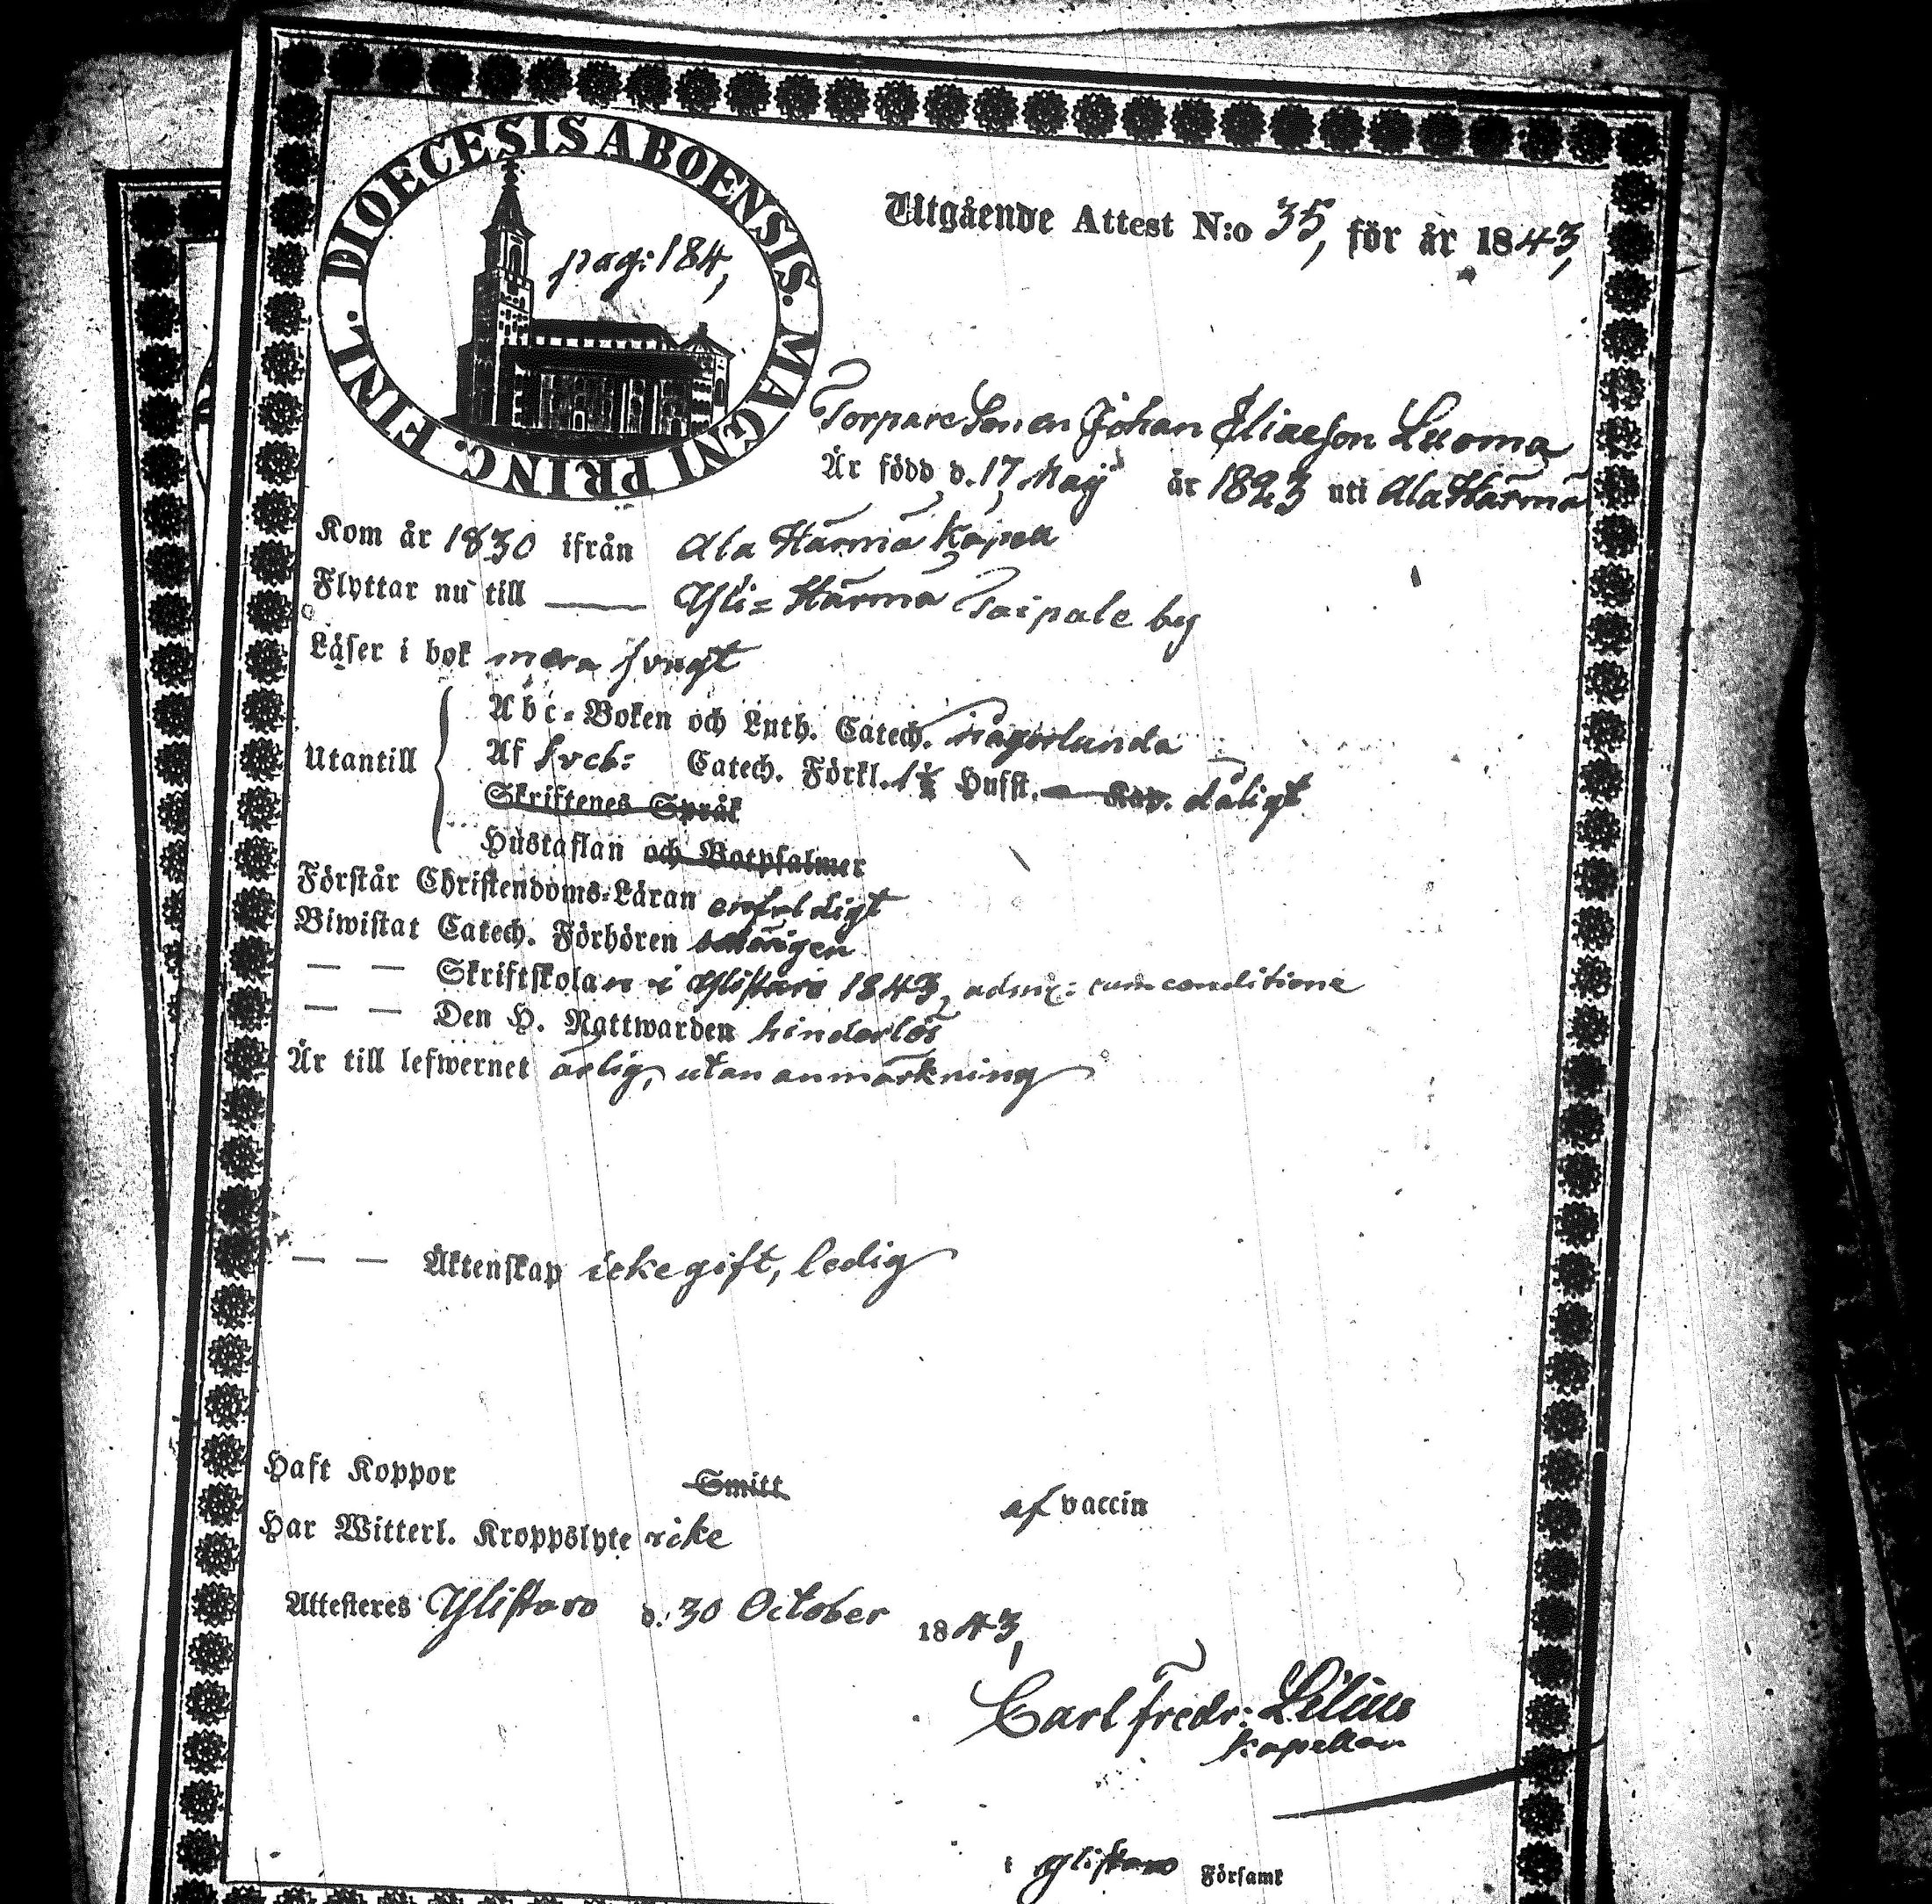 DIOECESIS ABOENSIS. MAGNI PRINC. FINL.
pag: 184,
Utgående Attest N:o 35, för år 1843,
Torpare Sonen Johan Eliaeson Luoma
Är född d. 17 Maij år 1823 uti Ala Härmä
Kom år 1830 ifrån Ala Härmä Kapell
Flyttar nu till — Yli=Härmä Taipale by
Läser i bok mera svagt
Utantill
Abc=Boken och Luth. Catech. någorlunda
Af Sveb: Catech. Förkl. 1½ Hufst. — Kap. dåligt
Skriftenes Språk
Hustaflan och Botpsalmer
Förstår Christendoms=Läran enfeldigt
Biwistat Catech. Förhören
— — Skriftskolan i Ylistaro 1843, adm: cum conditione
— — Den H. Nattwarden hinderlös
Är till lefwernet ärlig, utan anmärkning
— — Äktenskap icke gift, ledig
Haft Koppor Smitt af vaccin
Har Witterl. Kroppslyte icke
Attesteres Ylistaro d. 30 October 1843,
Carl Fredr: Lilius
Kapellan
i Ylistaro Församl